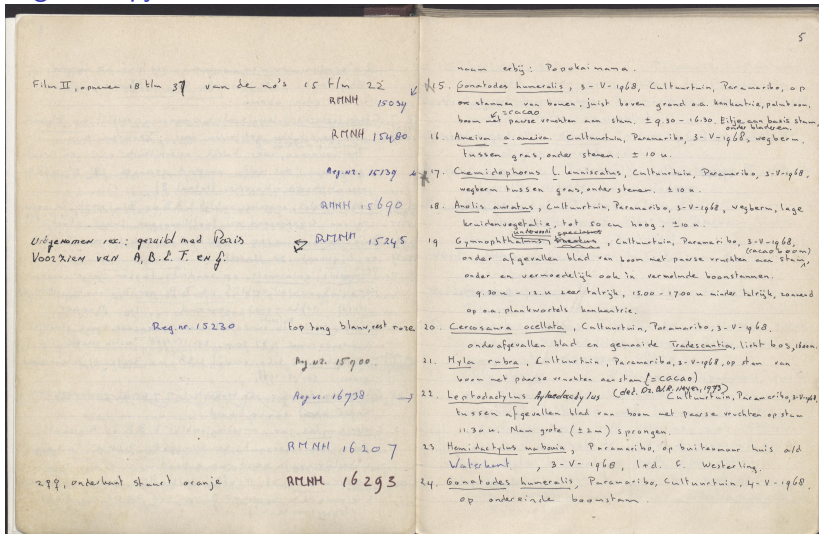 Film II, opnamen 18 t/m 37 van de no's 15 t/m 22
RMNH 15034
RMNH 15480
Reg.nr. 15139
RMNH 15690
Uitgenomen ex.: geruild med Paris
RMNH 15245
Voorzien van A, B. E. F. en G.
Reg.nr. 15230 top tong blauw, rest roze
Reg.nr. 15900
Reg.nr. 16738 →
RMNH 16207
2♀♀, onderkant staart oranje RMNH 16293
5
naam erbij: Popokaimama.
15. Gonatodes humeralis, 3-V-1968, Cultuurtuin, Paramaribo, op
stammen van bomen, juist boven grond o.a. kankantrie, palmboom,
=cacao
boom met paarse vruchten aan stam. ± 9.30 - 16.30. Eitje aan basis stam,
onder bladeren.
16. Ameiva a. ameiva. Cultuurtuin, Paramaribo, 3-V-1968, wegberm,
tussen gras, onder stenen. ± 10 u.
17. Cnemidophorus l. lemniscatus, Cultuurtuin, Paramaribo, 3-V-1968,
wegberm tussen gras, onder stenen. ± 10 u.
18. Anolis auratus, Cultuurtuin, Paramaribo, 3-V-1968, wegberm, lage
kruidenvegetatie, tot 50 cm hoog, ± 10 u.
underwoodi
19 Gymnophthalmus, Cultuurtuin, Paramaribo, 3-V-1968,
(cacaoboom)
onder afgevallen blad van boom met paarse vruchten aan stam,
onder en vermoedelijk ook in vermolmde boomstammen.
9.30 u - 12. u zeer talrijk, 15.00 - 17.00 u minder talrijk, zonnend
op o.a. plankwortels kankantrie.
20. Cercosaura ocellata, Cultuurtuin, Paramaribo, 3-V-1968.
onder afgevallen blad en gemaaide Tradescantia, licht bos,
21. Hyla rubra, Cultuurtuin, Paramaribo, 3-V-1968, op stam van
boom met paarse vruchten aan stam (= cacao)
22. Leptodactylus hylaedactylus (det. Dr. W.R. Heyer, 1973) Cultuurtuin, Paramaribo, 3-V-1968,
tussen afgevallen blad van boom met paarse vruchten op stam
11.30 u. Nam grote (± 2 m) sprongen.
23 Hemidactylus mabouia, Paramaribo, op buitenmuur huis a/d
Waterkant, 3-V-1968, l+d. G. Westerling.
24. Gonatodes humeralis, Paramaribo, Cultuurtuin, 4-V-1968.
op ondereinde boomstam.